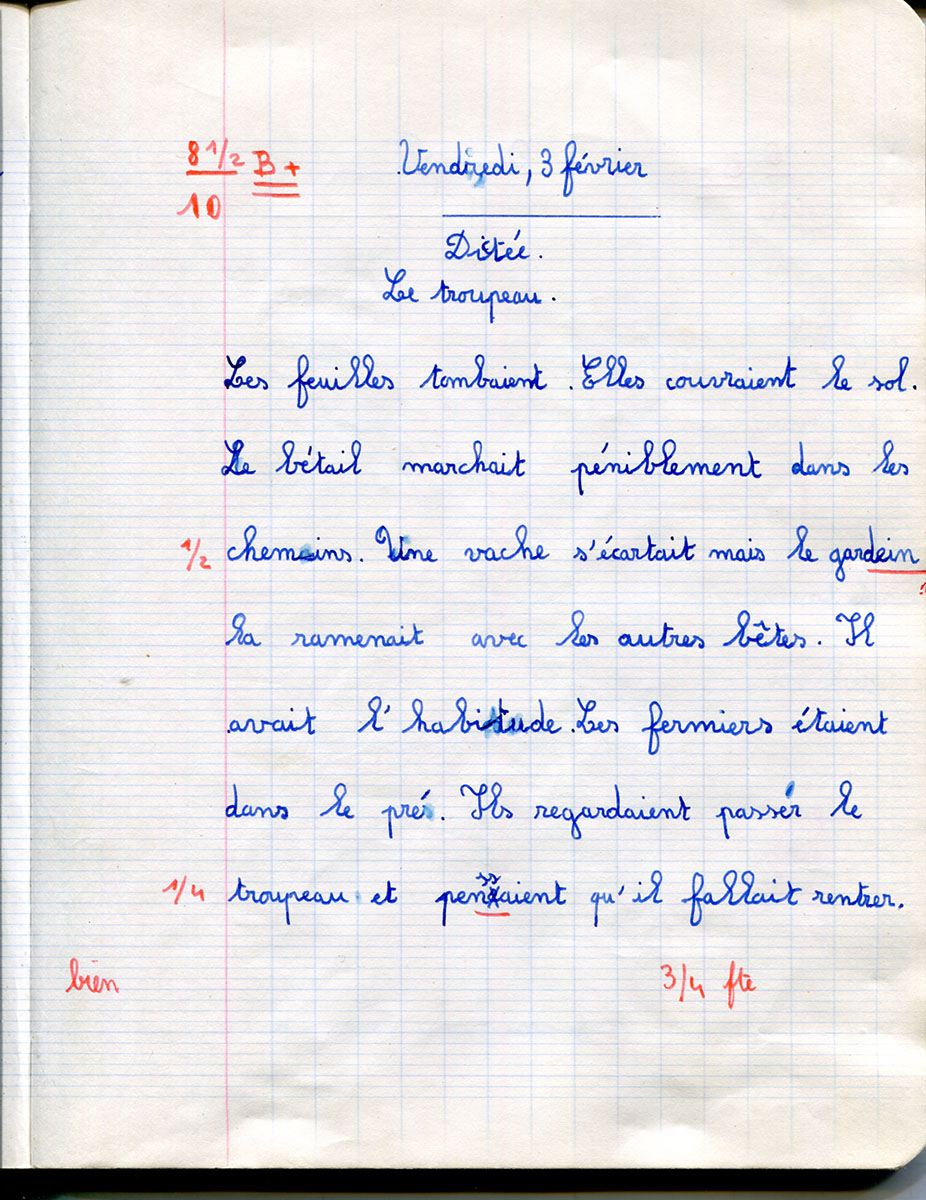 8 1/2 B+ Vendredi, 3 février
10
Dictée.
Le troupeau.
Les feuilles tombaient. Elles couvraient le sol.
Le bétail marchait péniblement dans les
1/2 chemins. Une vache s'écartait mais le gardein
la ramenait avec les autres bêtes. Il
avait l'habitude. Les fermiers étaient
dans le pré. Ils regardaient passer le
1/4 troupeau et penssaient qu'il fallait rentrer.
bien 3/4 fte